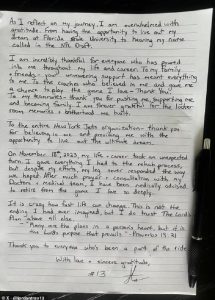 As I reflect on my journey, I am overwhelmed with
gratitude. From having the opportunity to live out my
dream at Florida State University to hearing my name
called in the NFL Draft.
I am incredibly thankful for everyone who has poured
into me throughout my life and career. To my family
& friends - your unwavering support has meant everything
to me. To the coaches who believed in me and gave me
a chance to play the game I love - Thank you.
To my teammates - thank you for pushing me, supporting me
and becoming family. I am forever grateful for the locker
room memories & brotherhood we built.
To the entire New York Jets organization - thank you
for believing in me and providing me with the
opportunity to live out the ultimate dream.
On November 18th, 2023, my life & career took an unexpected
turn. I gave everything I had to the rehab process,
but despite my efforts, my body never responded the way
we hoped. After much prayer & consultation with my
Doctors & medical team, I have been medically advised
to retire from the game I love so deeply.
It is crazy how fast life can change. This is not the
ending I had ever imagined, but I do trust The Lord's
Plan above all else.
"Many are the plans in a person's heart, but it is
the Lord's purpose that prevails." - Proverbs 19:21
Thank you to everyone who's been a part of the ride
With love & sincere gratitude,
#13